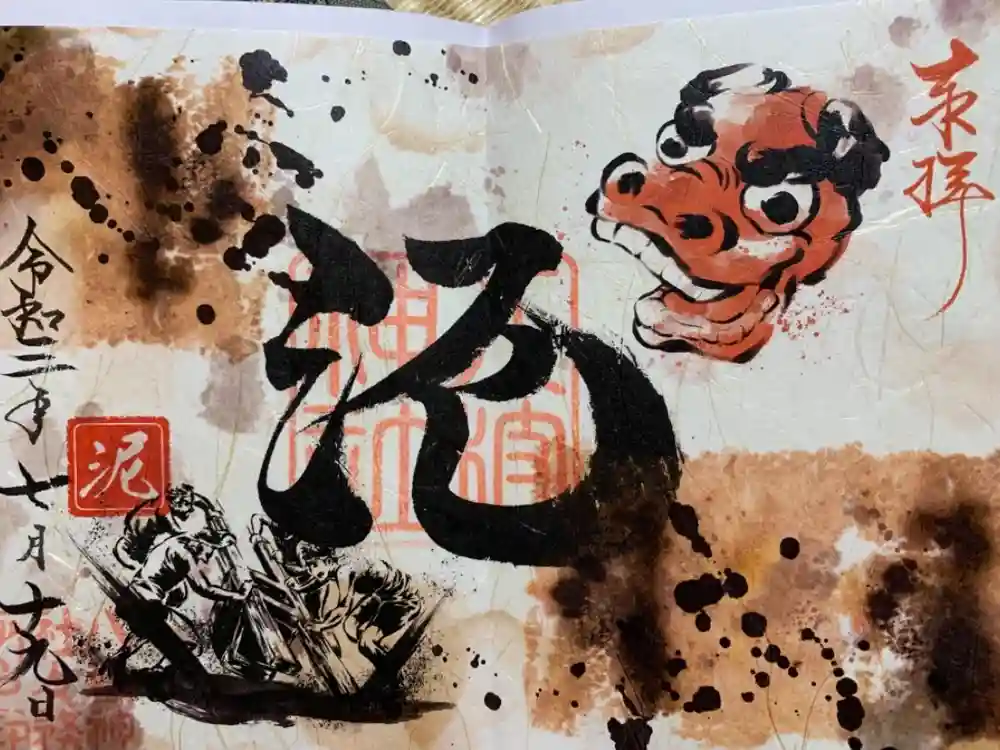 奉拝
泥
令和二年七月十九日
泥